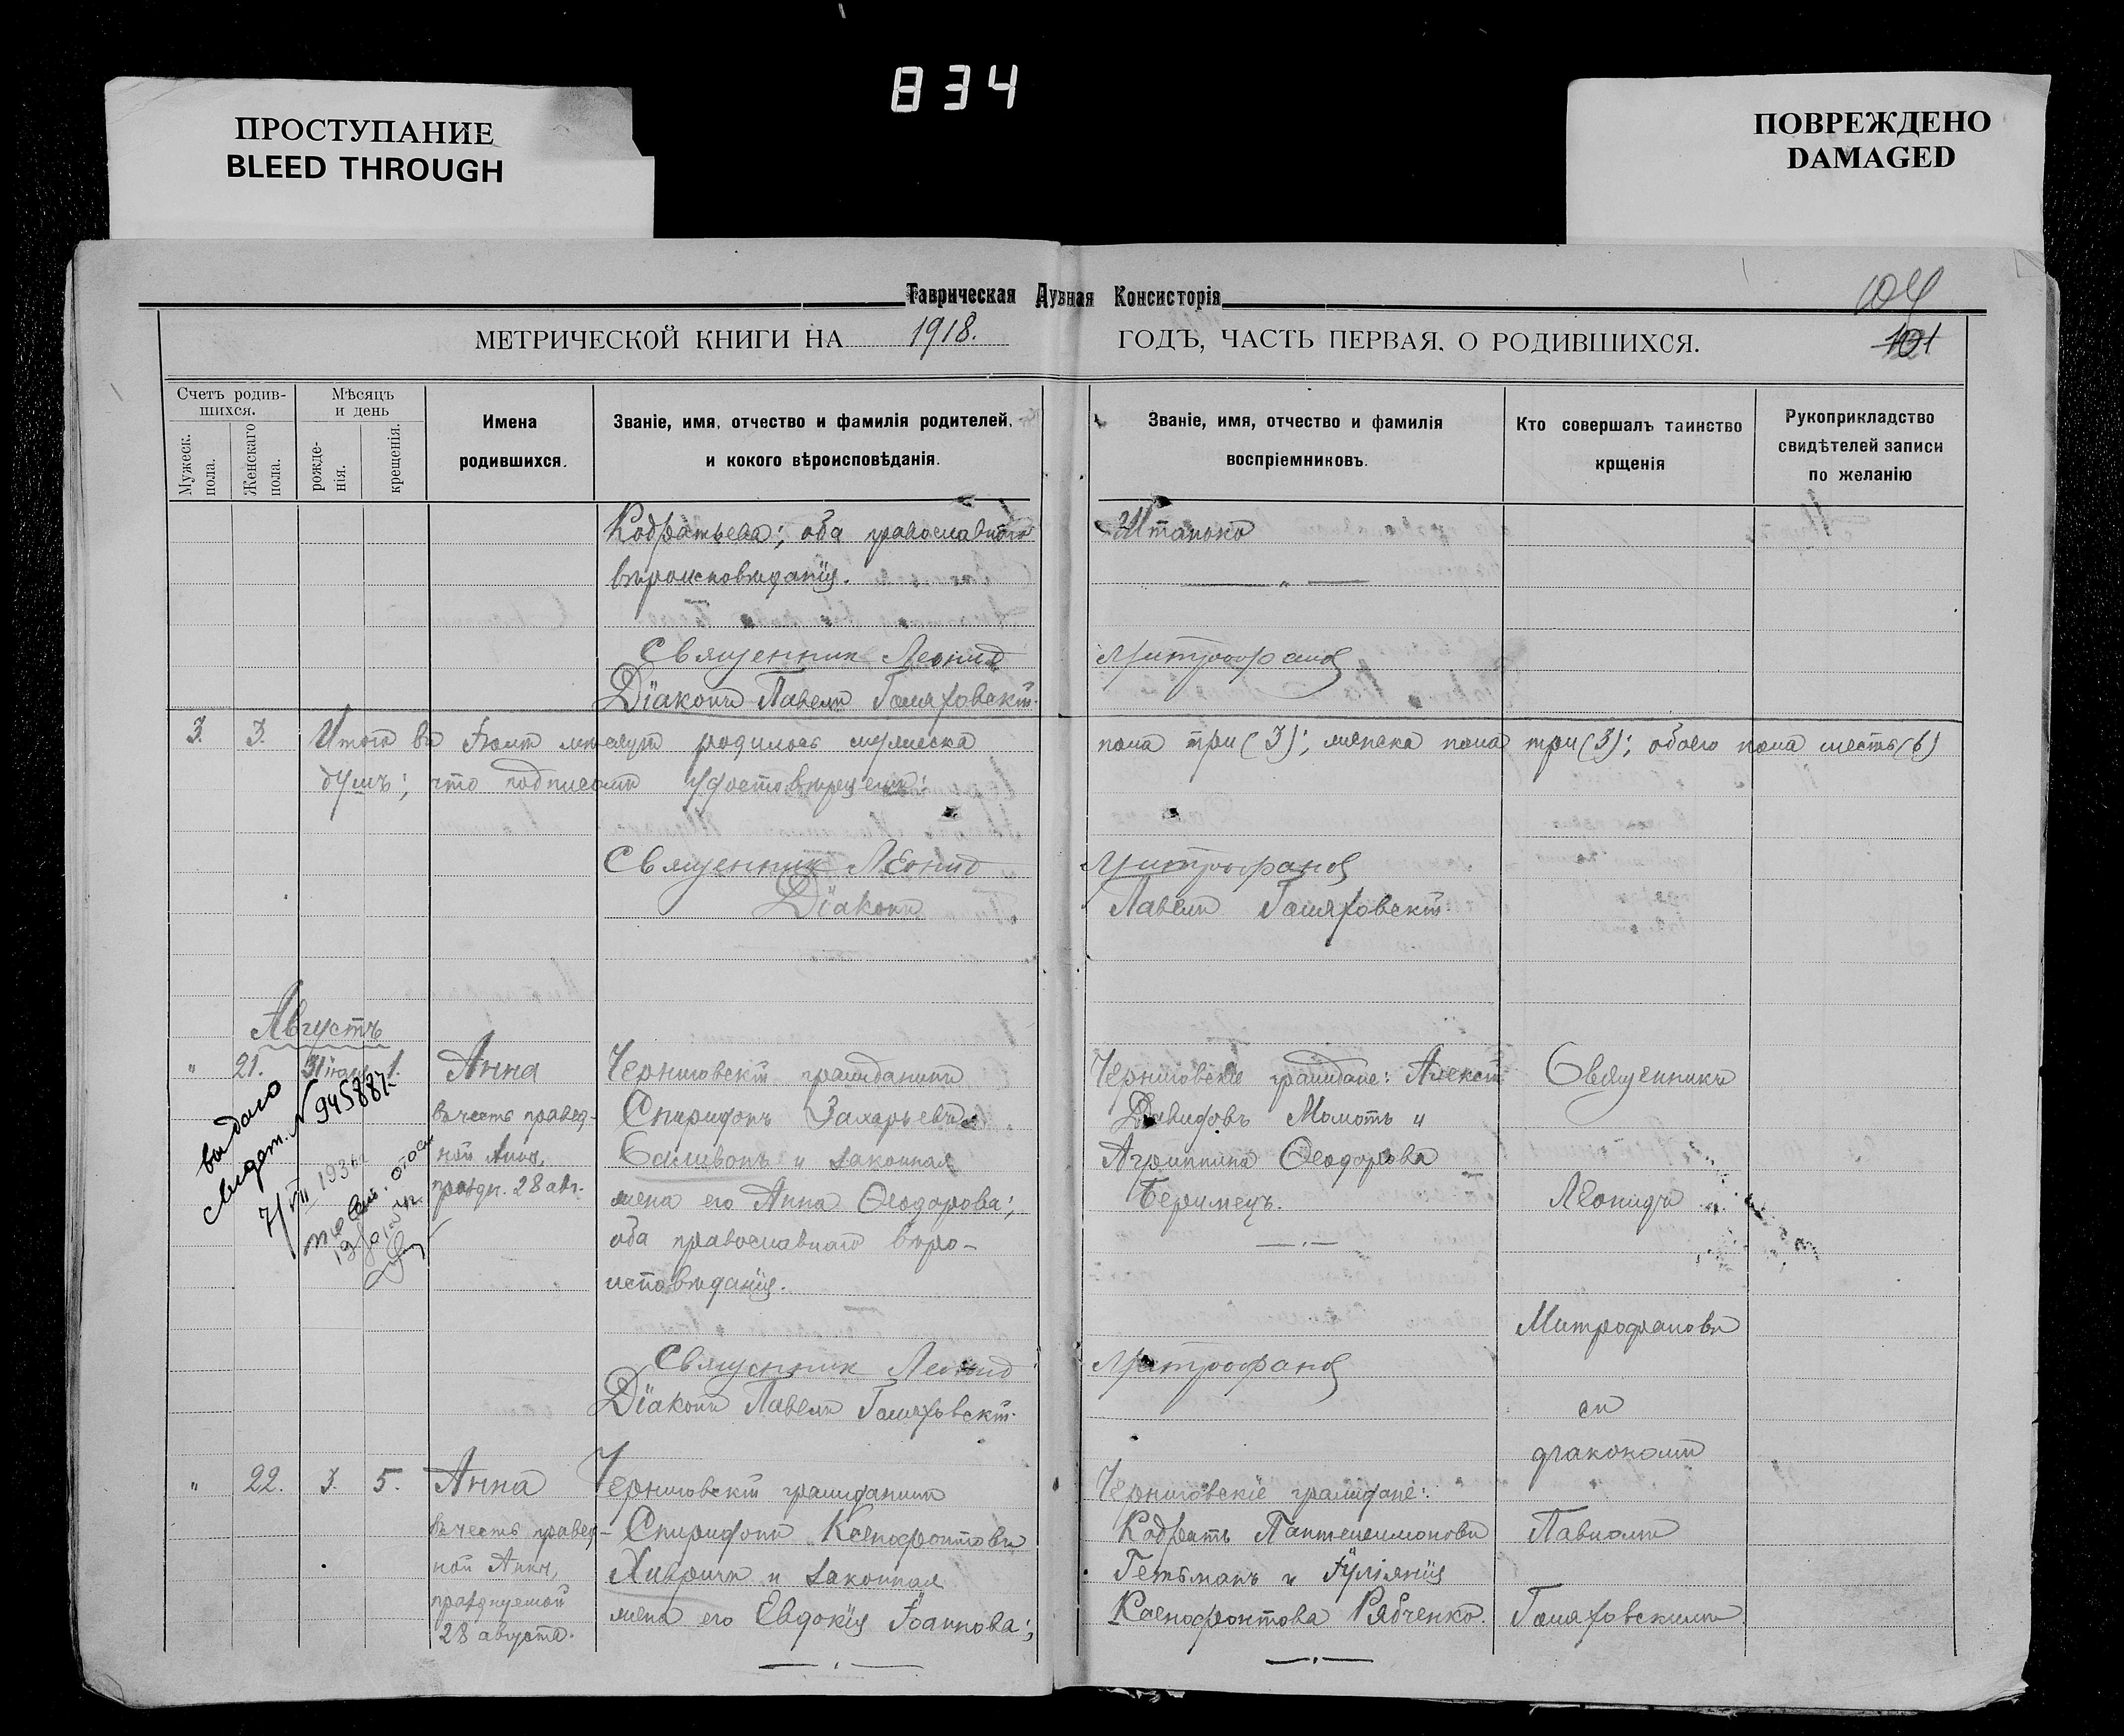 834
ПРОСТУПАНИЕ
BLEED THROUGH
ПОВРЕЖДЕНО
DAMAGED
Таврическая Духвная Консисторія
104
МЕТРИЧЕСКОЙ КНИГИ НА 1918. ГОДЪ, ЧАСТЬ ПЕРВАЯ, О РОДИВШИХСЯ.
101
Счетъ родив-
шихся.
Мужеск.
пола.
Женскаго
пола.
Мѣсяцъ
и день
рожде-
нія.
крещенія.
Имена
родившихся.
Званіе, имя, отчество и фамилія родителей,
и кокого вѣроисповѣданія.
Званіе, имя, отчество и фамилія
воспріемниковъ.
Кто совершалъ таинство
крщенія
Рукоприкладство
свидѣтелей записи
по желанію
Кодратьева; оба православнаго
вѣроисповѣданія.
Штанько
Священник Леонид Митрофанов
Діаконъ Павелъ Гомяховскій.
3. 3. Итого въ Іюлѣ мѣсяцѣ родилось мужеска пола три (3); женска пола три (3); обоего пола шесть (6)
душъ; что подписомъ удостовѣряемъ:
Священник Леонид Митрофанов
Діаконъ Павелъ Гомяховскій.
Августъ
" 21. 31 іюля 1. Анна
въ честь правед-
ной Анны,
праздн. 28 авг.
выдано
свидет. № 945887
7/VIII 193
Черниговскій гражданинъ
Спиридонъ Захарьевъ
Саливонъ и законная
жена его Анна Ѳеодорова;
оба православнаго вѣро-
исповѣданія.
Черниговскіе граждане: Алексѣй
Давидовъ Мамотъ и
Агриппина Ѳеодорова
Беримецъ.
Священникъ
Леонидъ
Митрофановъ
съ
діакономъ
Павломъ
Гомяховскимъ
Священник Леонид Митрофанов
Діаконъ Павелъ Гомяховскій.
" 22. 3. 5. Анна
въ честь правед-
ной Анны,
празднуемой
28 августа.
Черниговскій гражданинъ
Спиридонъ Ксенофонтовъ
Хивричъ и законная
жена его Евдокія Іоаннова;
Черниговскіе граждане:
Кодратъ Пантелеимоновъ
Гетьманъ и Іуліянія
Ксенофонтова Рябченко.